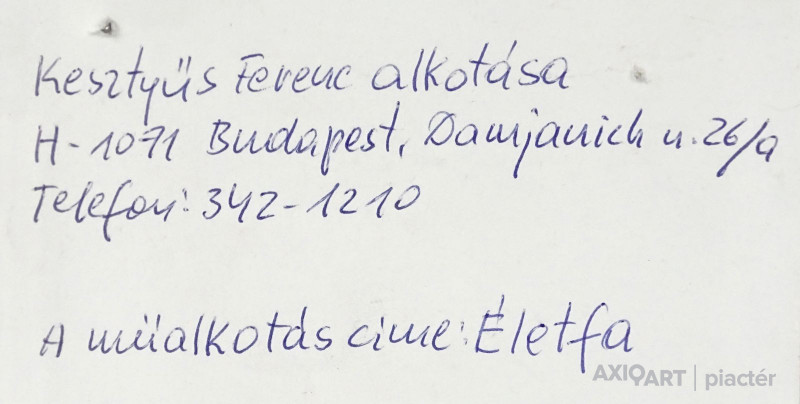 Kesztyűs Ferenc alkotása
H-1071 Budapest, Damjanich u. 26/a
Telefon: 342-1210
A műalkotás címe: Életfa
AXIOART | piactér